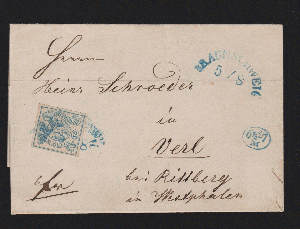 Herrn
BRAUNSCHWEIG
5/8
Heinr Schroeder
in
Verl
bei Rittberg
in Westphalen